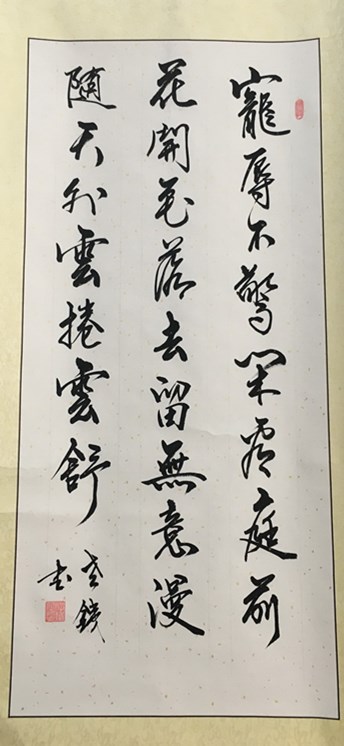 寵辱不驚閑看庭前
花開花落去留無意漫
隨天外雲捲雲舒
书